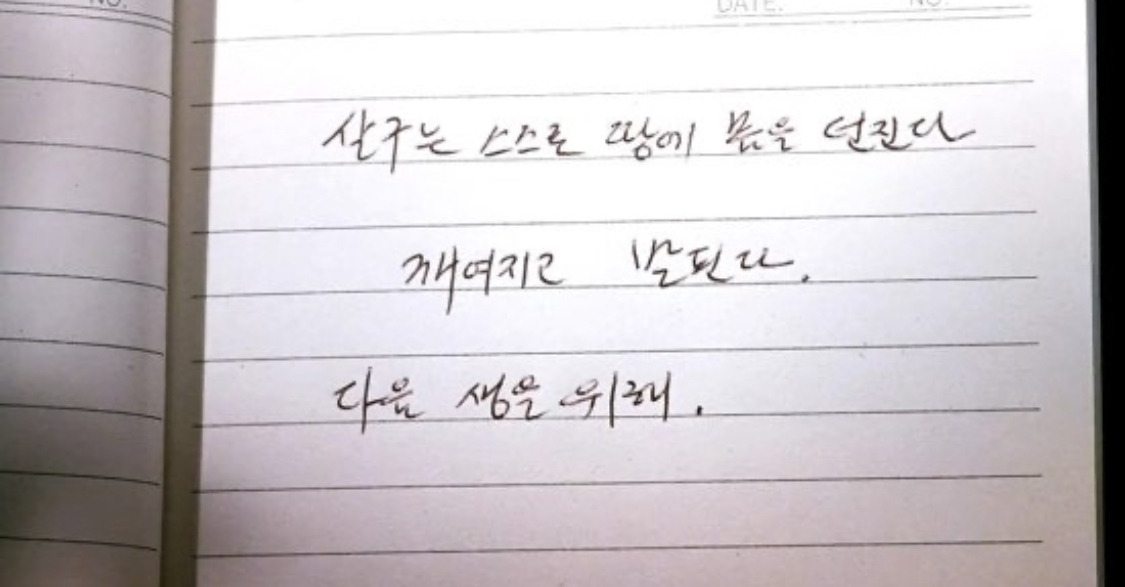 DATE. NO.
NO.
살구는 스스로 땅에 몸을 던진다
깨여지고 밟힌다.
다음 생을 위해.